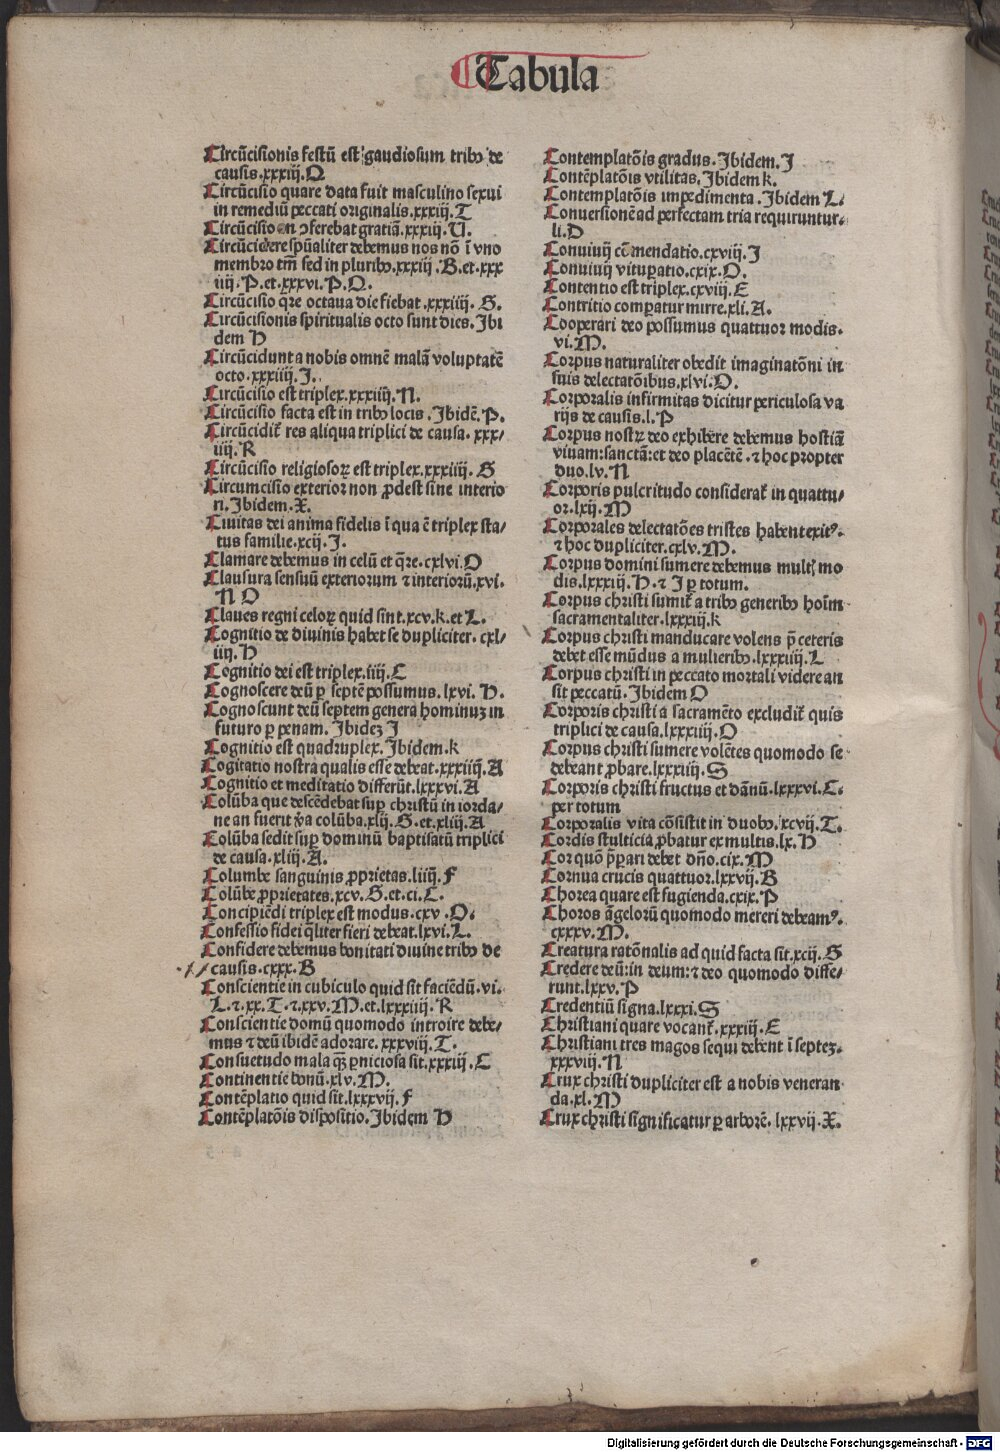 Tabula
Circūcisionis festū est gaudiosum tribꝰ de
causis.xxxiij.Q
Circūcisio quare data fuit masculino sexui
in remediū peccati originalis.xxxiij.T
Circūcisio n ꝯferebat gratiā.xxxiij.U.
Circūcidere spūaliter debemus nos nō ī vno
membro tm̄ sed in pluribꝰ.xxxiij.B.et.xxx
iiij.P.et.xxxvi.P.Q.
Circūcisio q̄re octaua die fiebat.xxxiiij.G.
Circūcisionis spiritualis octo sunt dies.Ibi
dem H
Circūcidunt a nobis omnē malā voluptatē
octo.xxxiiij.I.
Circūcisio est triplex.xxxiiij.N.
Circūcisio facta est in tribꝰ locis.Ibidē.P.
Circūcidit̄ res aliqua triplici de causa.xxx/
iiij.R
Circūcisio religiosoꝝ est triplex.xxxiiij.S
Circumcisio exterior non ꝓdest sine interio
ri.Ibidem.X.
Ciuitas dei anima fidelis ī qua ē triplex sta/
tus familie.xcij.I.
Clamare debemus in celū et q̄re.cxlvi.O
Clausura sensuū exteriorum ⁊ interiorū.xvi.
N O
Claues regni celoꝝ quid sint.xcv.k.et L.
Cognitio de diuinis habet se dupliciter.cxl/
iiij.H
Cognitio dei est triplex.iiij.C
Cognoscere deū ꝑ septē possumus.lxvi.H.
Cognoscunt deū septem genera hominuꝫ in
futuro ꝑ penam.Ibideꝫ I
Cognitio est quadruplex.Ibidem.k
Cogitatio nostra qualis esse debeat.xxxiiij.A
Cognitio et meditatio differūt.lxxxvi.A
Colūba que descēdebat suꝑ christū in iorda/
ne an fuerit v̄a colūba.xlij.G.et.xliij.A
Colūba sedit suꝑ dominū baptisatū triplici
de causa.xliij.A.
Columbe sanguinis ꝓprietas.liiij.F
Colūbe ꝓprietates.xcv.G.et.ci.C.
Concipiēdi triplex est modus.cxv.O.
Confessio fidei q̄liter fieri debeat.lxvi.L.
Confidere debemus bonitati diuine tribꝰ de
causis.cxxx.B
Conscientie in cubiculo quid sit faciēdū.vi.
L.⁊.xx.T.⁊.xxv.M.et.lxxxiiij.R
Conscientie domū quomodo introire debe/
mus ⁊ deū ibidē adorare.xxxviij.T.
Consuetudo mala q̄ꝫ ꝑniciosa sit.xxxiij.C
Continentie bonū.xlv.M.
Contēplatio quid sit.lxxxvij.F
Contēplatōis dispositio.Ibidem H
Contemplatōis gradus.Ibidem.I
Contēplatōis vtilitas.Ibidem k.
Contemplatōis impedimenta.Ibidem L.
Conuersionē ad perfectam tria requiruntur.
li.D
Conuiuij cōmendatio.cxviij.I
Conuiuij vituꝑatio.cxix.O.
Contentio est triplex.cxviij.E
Contritio comꝑatur mirre.xli.A.
Cooperari deo possumus quattuor modis.
vi.M.
Corpus naturaliter obedit imaginatōni in
suis delectatōibus.xlvi.O.
Corporalis infirmitas dicitur periculosa va
rijs de causis.l.P
Corpus nostꝝ deo exhibere debemus hostiā
viuam:sanctā:et deo placētē.⁊ hoc propter
duo.lv.N
Corporis pulcritudo considerat̄ in quattu/
or.lxij.M
Corporales delectatōes tristes habent exitꝰ.
⁊ hoc dupliciter.cxlv.M.
Corpus domini sumere debemus mult̄ mo
dis.lxxxiij.H.⁊ I ꝑ totum.
Corpus christi sumit̄ a tribꝰ generibꝰ hoīm
sacramentaliter.lxxxiij.k
Corpus christi manducare volens p̄ ceteris
debet esse mūdus a mulieribꝰ.lxxxiiij.L
Corpus christi in peccato mortali videre an
sit peccatū.Ibidem O
Corporis christi a sacramēto excludit̄ quis
triplici de causa.lxxxiiij.O
Corpus christi sumere volētes quomodo se
debeant ꝓbare.lxxxiiij.S
Corporis christi fructus et dānū.lxxxvi.C.
per totum
Corporalis vita cōsistit in duobꝰ.xcvij.T.
Cordis stulticia ꝓbatur ex multis.lx.H
Cor quō p̄ꝑari debet dn̄o.cix.M
Cornua crucis quattuor.lxxvij.B
Chorea quare est fugienda.cxix.P
Choros āgelorū quomodo mereri debeamꝰ.
cxxxv.M.
Creatura ratōnalis ad quid facta sit.xcij.G
Credere deū:in deum:⁊ deo quomodo diffe/
runt.lxxv.P
Credentiū signa.lxxxi.S
Christiani quare vocant̄.xxxiij.E
Christiani tres magos sequi debent ī septeꝫ.
xxxviij.N
Crux christi dupliciter est a nobis veneran
da.xl.M
Crux christi significatur ꝑ arborē.lxxvij.X.
Digitalisierung gefördert durch die Deutsche Forschungsgemeinschaft - DFG